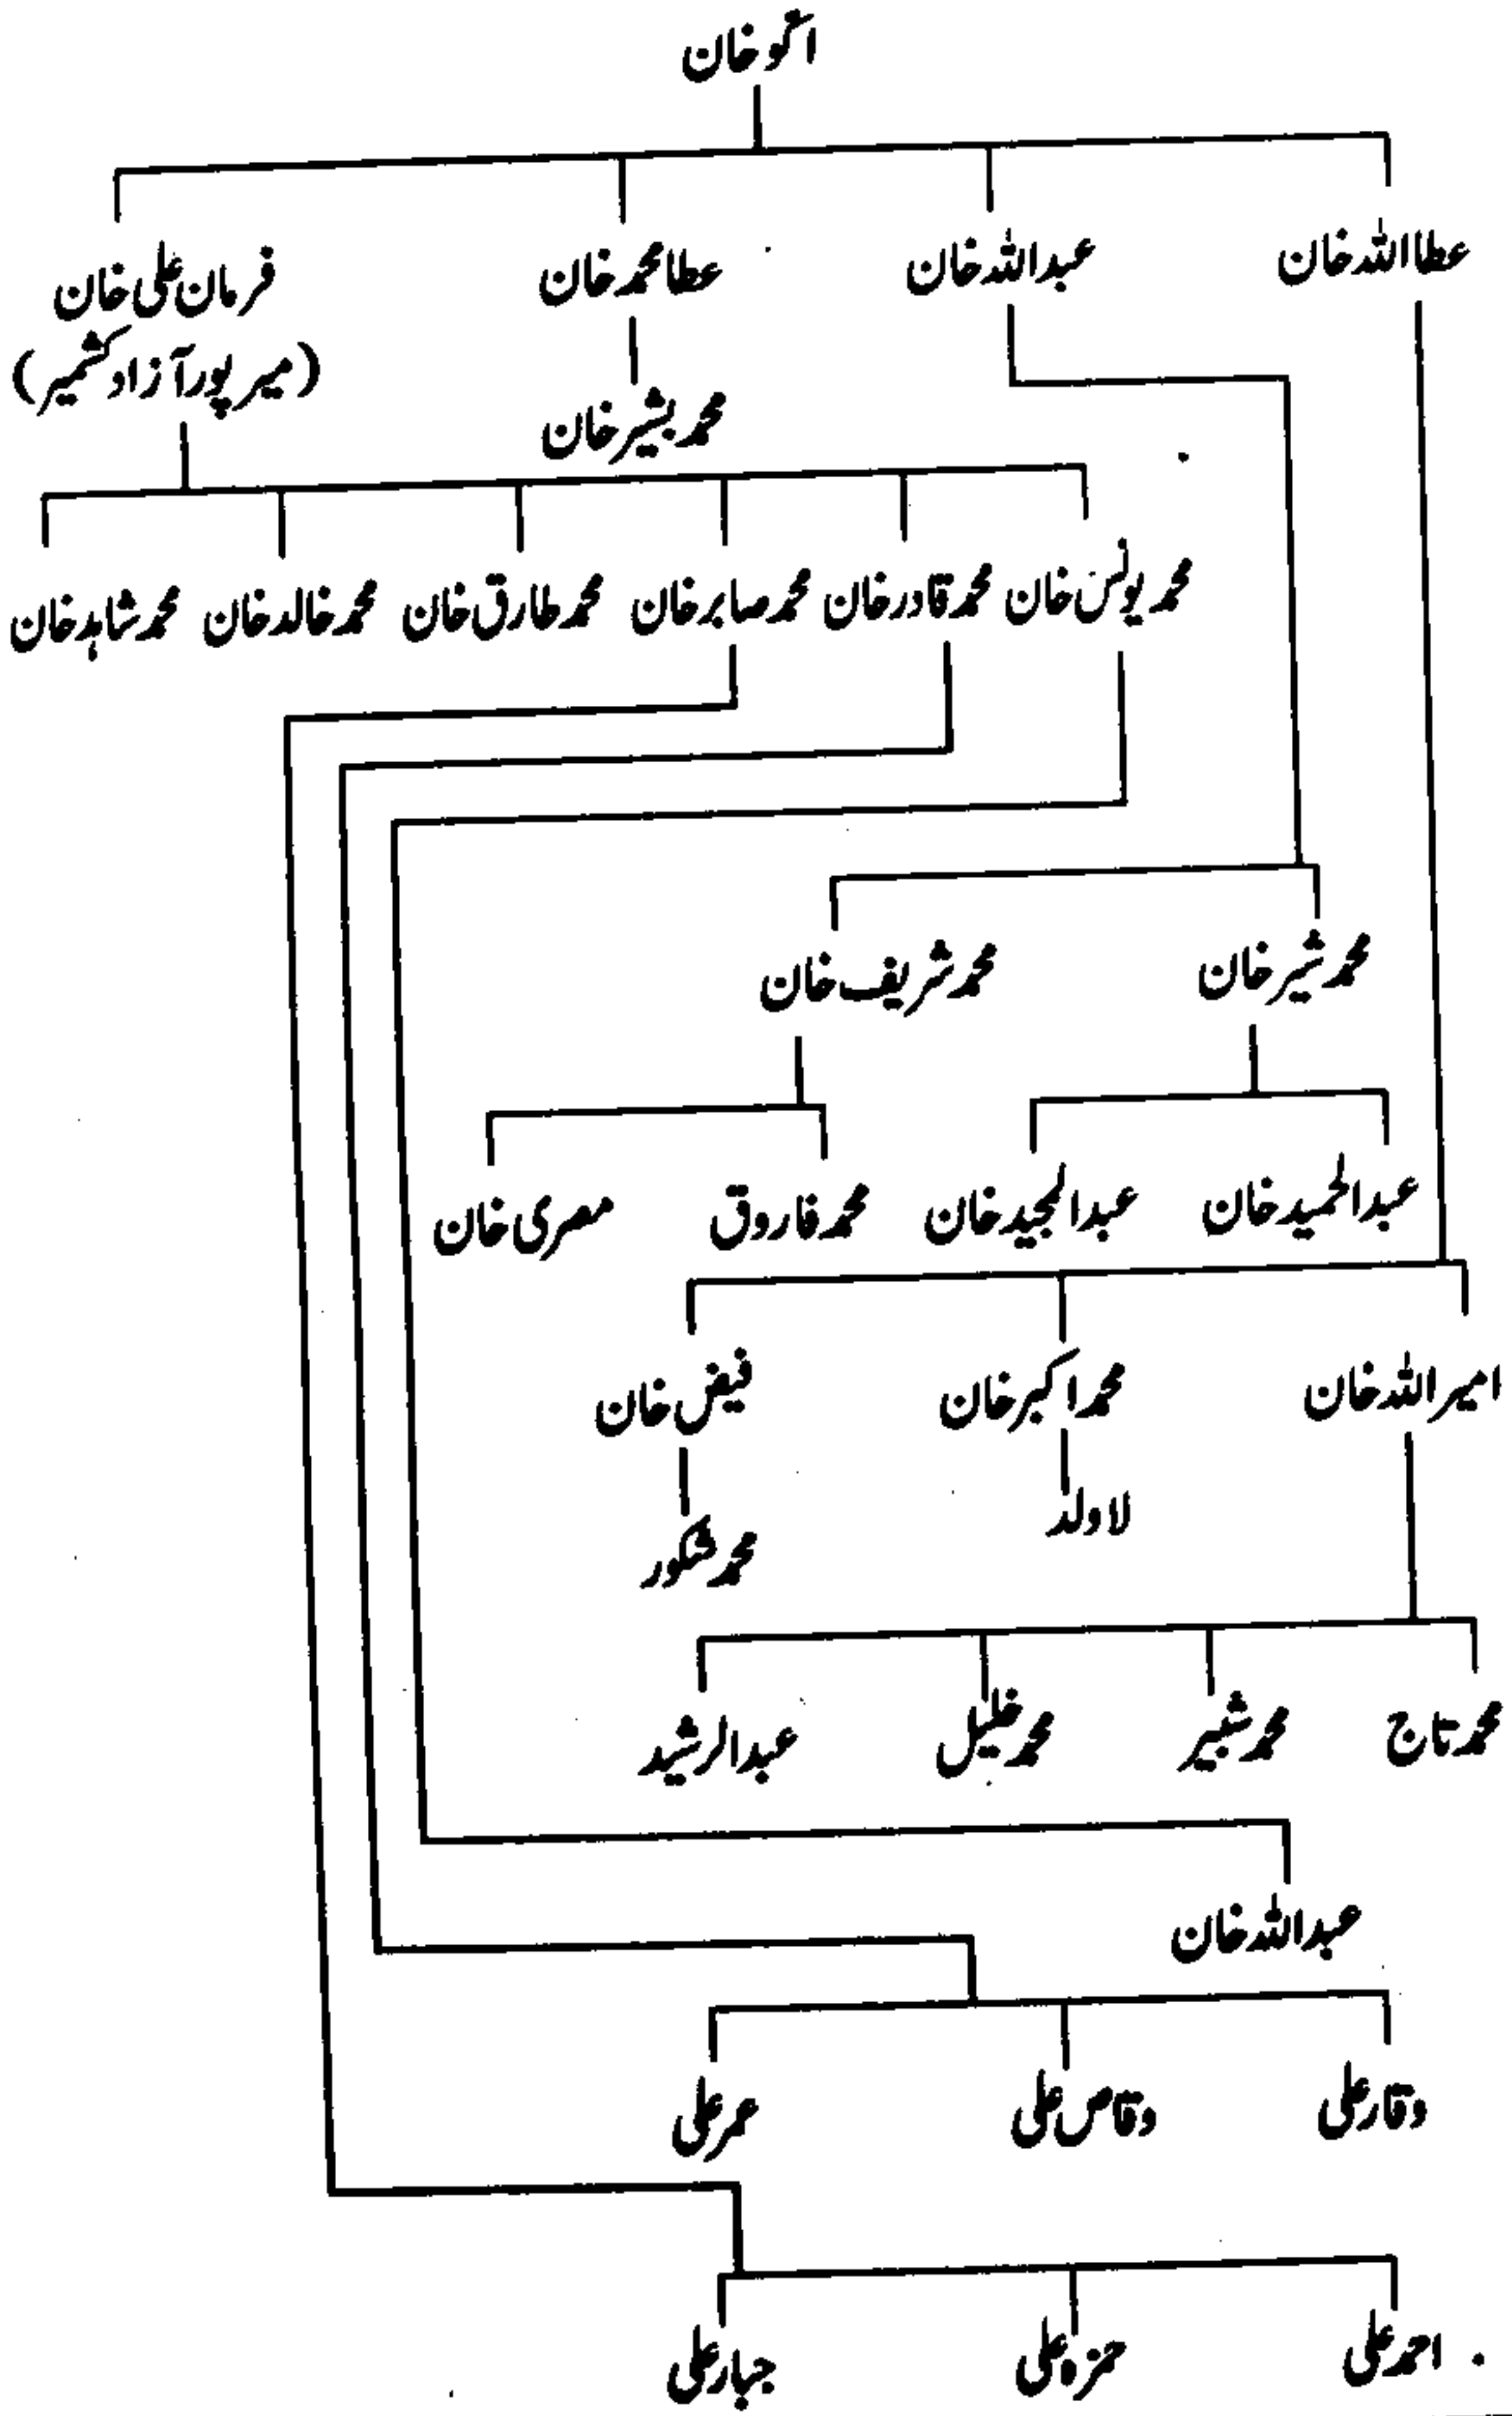 اگو خان
عطا اللہ خان
عبداللہ خان
عطا محمد خان
فرمان علی خان
(میر پور آزاد کشمیر)
محمد بشیر خان
محمد یونس خان
محمد قادر خان
محمد صابر خان
محمد طارق خان
محمد خالد خان
محمد شاہد خان
محمد شیر خان
محمد شریف خان
عبدالحمید خان
عبدالمجید خان
محمد فاروق
مصری خان
امیر اللہ خان
محمد اکبر خان
فیض خان
لاولد
محمد شکور
محمد تاج
محمد شبیر
محمد خلیل
عبدالرشید
عبداللہ خان
وقار علی
وقاص علی
عمر علی
احمد علی
حمزہ علی
جبار علی